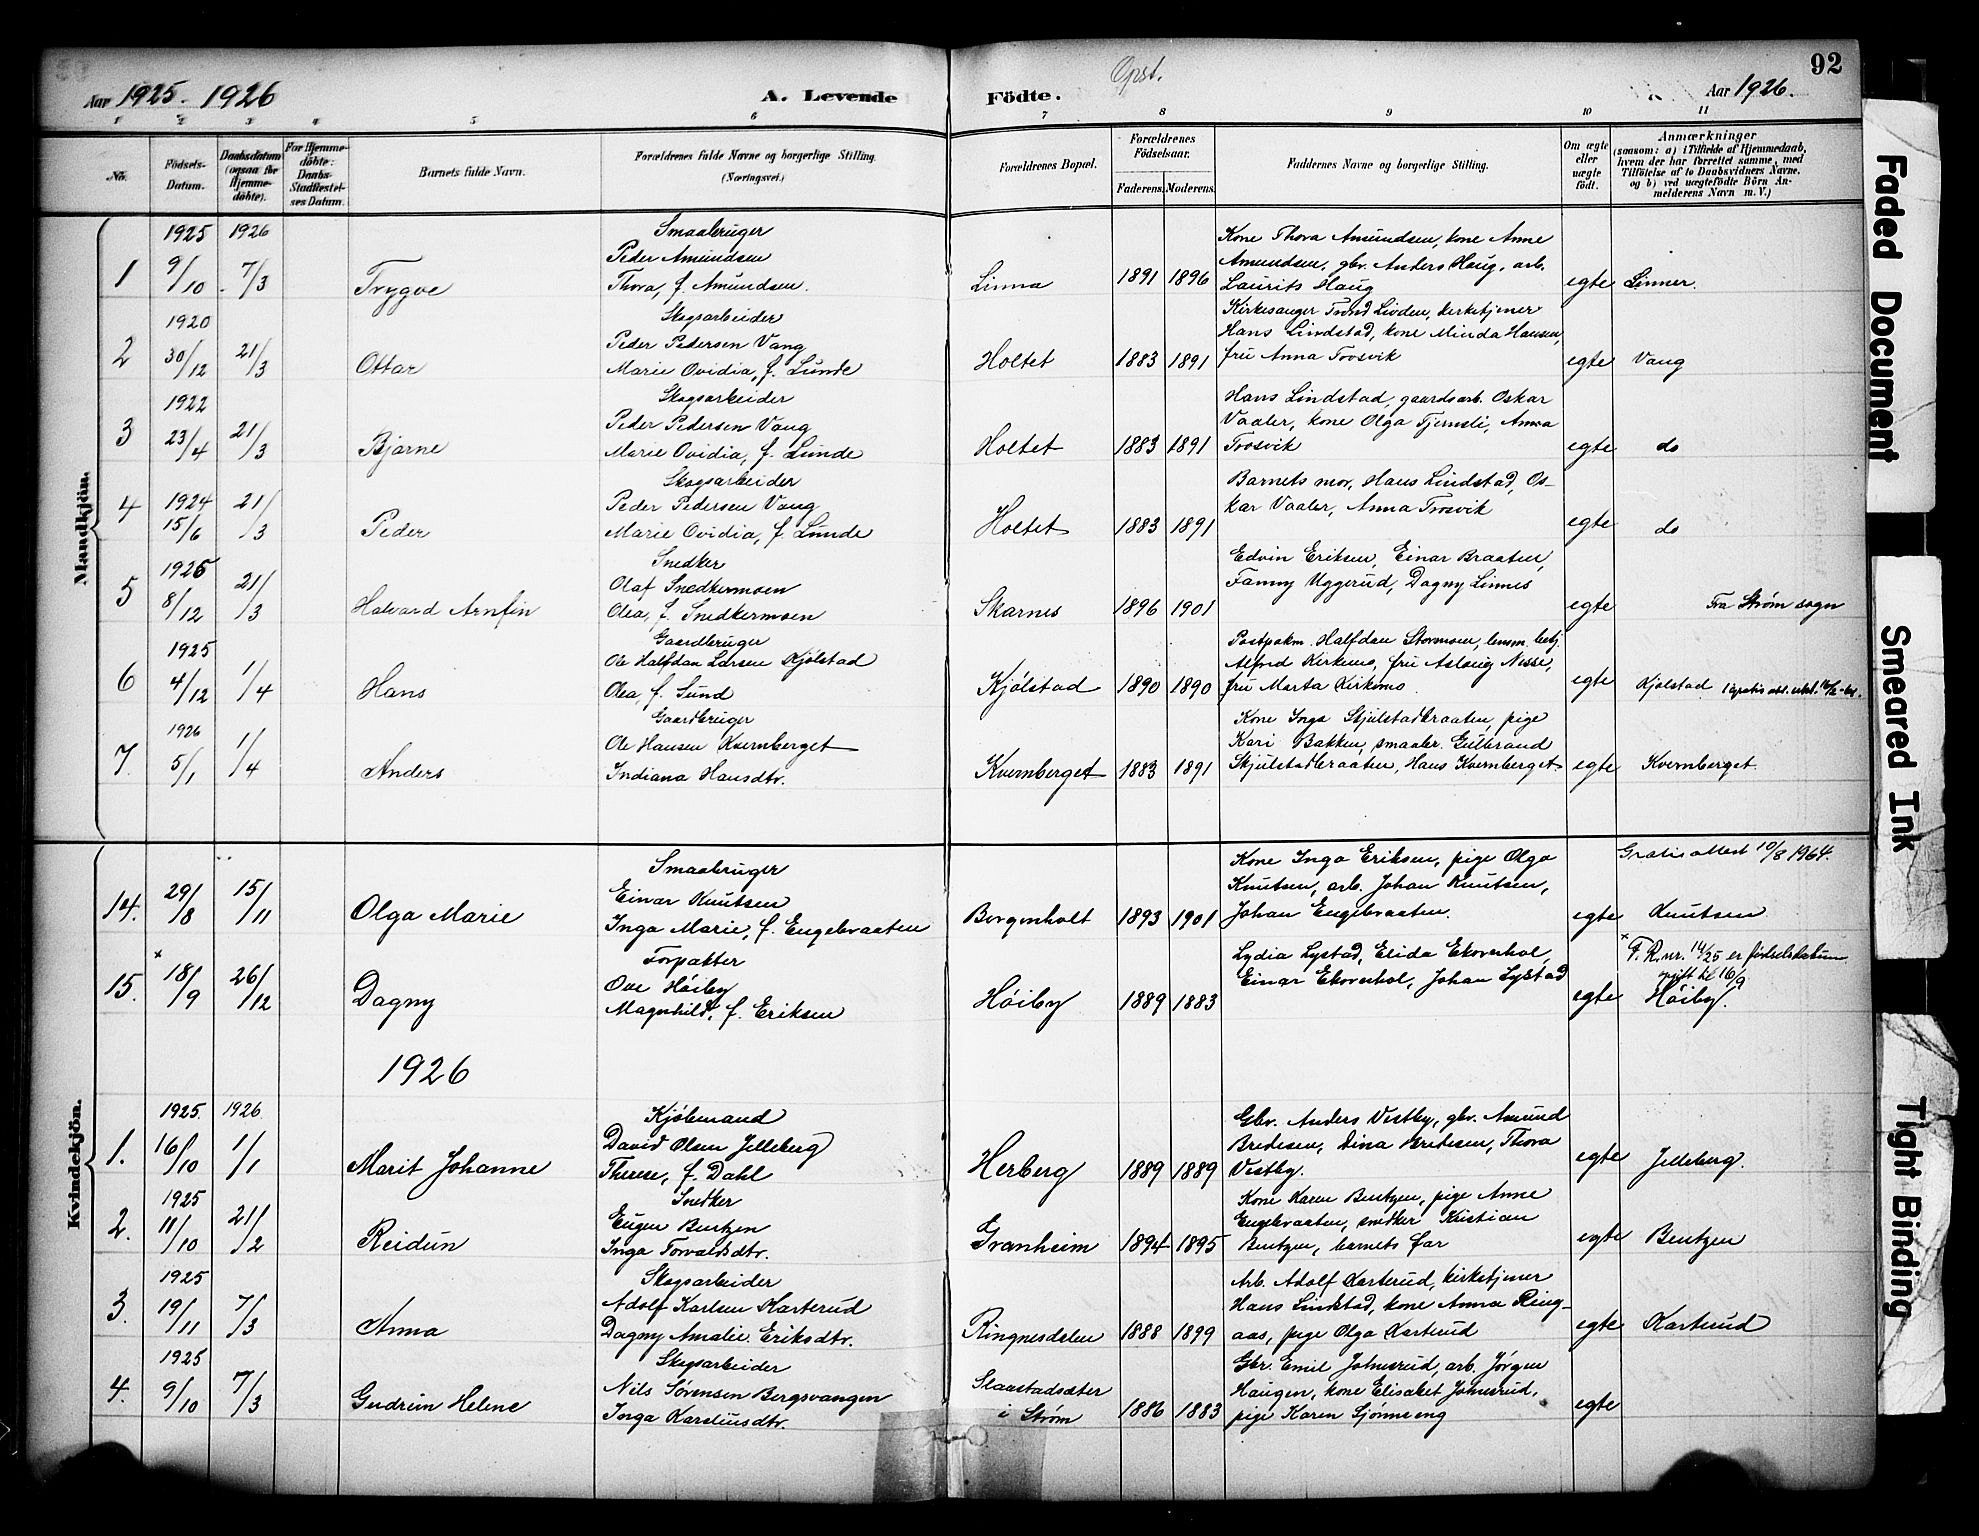 Aar 1925-1926
A. Levende
Födte.
Opst.
Aar 1926.
92
1 2 3 4 5 6 7 8 9 10 11
No.
Födsels-
Datum.
Daabsdatum
(ogsaa for
Hjemme-
döbte).
For Hjemme-
döbte:
Daabs-
Stadfæstel-
ses Datum.
Barnets fulde Navn.
Forældrenes fulde Navne og borgerlige Stilling.
(Næringsvei.)
Forældrenes Bopæl.
Forældrenes
Födselsaar.
Faderens. Moderens.
Faddernes Navne og borgerlige Stilling.
Om ægte
eller
uægte
født.
Anmærkninger
(saasom: a) i Tilfælde af Hjemmedaab,
hvem der har forrettet samme, med
Tilföielse af to Daabsvidners Navne,
og b) ved uægtefödte Börn An-
melderens Navn m. V.)
Mandkjön.
1
1925
9/10
1926
7/3
Trygve
Smaabruger
Peder Amundsen
Thora, f. Amundsen.
Linna
1891 1896
Kone Thora Amundsen, kone Anne
Amundsen, gbr. Anders Haug, arb.
Laurits Haug
egte
Linner.
2
1920
30/12
21/3
Ottar
Skogsarbeider
Peder Pedersen Vang
Marie Ovidia, f. Lunde
Holtet
1883 1891
Kirkesanger Trond Livden, kirketjener
Hans Lindstad, kone Minda Hansen,
fru Anna Trosvik
egte
Vang
3
1922
23/4
21/3
Bjarne
Skogsarbeider
Peder Pedersen Vang
Marie Ovidia, f. Lunde
Holtet
1883 1891
Hans Lindstad, gaardsarb. Oskar
Vaaler, kone Olga Tjernsli, Anna
Trosvik
egte
do
4
1924
15/6
21/3
Peder
Skogsarbeider
Peder Pedersen Vang
Marie Ovidia, f. Lunde
Holtet
1883 1891
Barnets mor, Hans Lindstad, Os-
kar Vaaler, Anna Trosvik
egte
do
5
1925
8/12
21/3
Halvard Arnfin
Snedker
Olaf Snedkermoen
Olea, f. Snedkermoen
Skarnes
1896 1901
Edvin Eriksen, Einar Braaten,
Fanny Uggerud, Dagny Linnes
egte
Fra Strøm sogn
6
1925
4/12
1/4
Hans
Gaardbruger
Ole Halfdan Larsen Kjölstad
Olea, f. Sund
Kjölstad
1890 1890
Postpakm. Halfdan Stormoen, lensm. betj.
Alfred Kirkemo, fru Aslaug Nesse,
fru Marta Kirkemo.
egte
Kjölstad
7.
1926
5/1
1/4
Anders
Gaardbruger
Ole Hansen Kvernberget
Indiana Hansdtr.
Kvernberget
1883 1891
Kone Inga Skjulstadbraaten, pige
Kari Bakken, smaabr. Gulbrand
Skjulstadbraaten, Hans Kvernberget.
egte
Kvernberget.
Kvindekjön.
14.
29/8
15/11
Olga Marie
Smaabruger
Einar Knutsen
Inga Marie, f. Engebraaten
Borgenholt
1893 1901
Kone Inga Eriksen, pige Olga
Knutsen, arb. Johan Knutsen,
Johan Engebraaten.
egte
Gratis attest 10/8 1964.
Knutsen
15.
x
18/9
26/12
Dagny
Forpakter
Ove Höiby
Magnhild, f. Eriksen
Höiby
1889 1883
Lydia Lystad, Elida Ekoverhol,
Einar Ekoverhol, Johan Lystad
egte
x F. R. nr. 14/25 er fødselsdatum
gitt til 16/9
Höiby.
1926
1.
1925.
16/10
1926
1/1
Marit Johanne
Kjöbmand
David Olsen Jelleberg
Therese, f. Dahl
Herberg
1889 1889
Gbr. Anders Vestby, gbr. Amund
Bredesen, Dina Bredesen, Thora
Vestby.
egte
Jelleberg.
2.
1925
11/10
21/2
Reidun
Snedker
Eugen Bentzen
Inga Torvaldsdtr.
Granheim
1894 1895
Kone Karen Bentzen, pige Anne
Engebraaten, snedker Kristian
Bentzen, barnets far
egte
Bentzen
3.
1925
19/11
7/3
Anna
Skogsarbeider
Adolf Karlsen Karterud
Dagny Amalie Eriksdtr.
Ringnesdalen
1888 1899
Arb. Adolf Karterud, kirketjener
Hans Lindstad, kone Anna Ring-
aas, pige Olga Karterud
egte
Karterud
4.
1925
9/10
7/3
Gudrun Helene
Skogsarbeider
Nils Sørensen Bergsvangen
Inga Kareliusdtr.
Slaastadsæter
i Strøm
1886 1883
Gbr. Emil Johnsrud, arb. Jörgen
Haugen, kone Elisabet Johnsrud,
pige Karen Sjönnreng
egte
Faded Document
Smeared Ink
Tight Binding